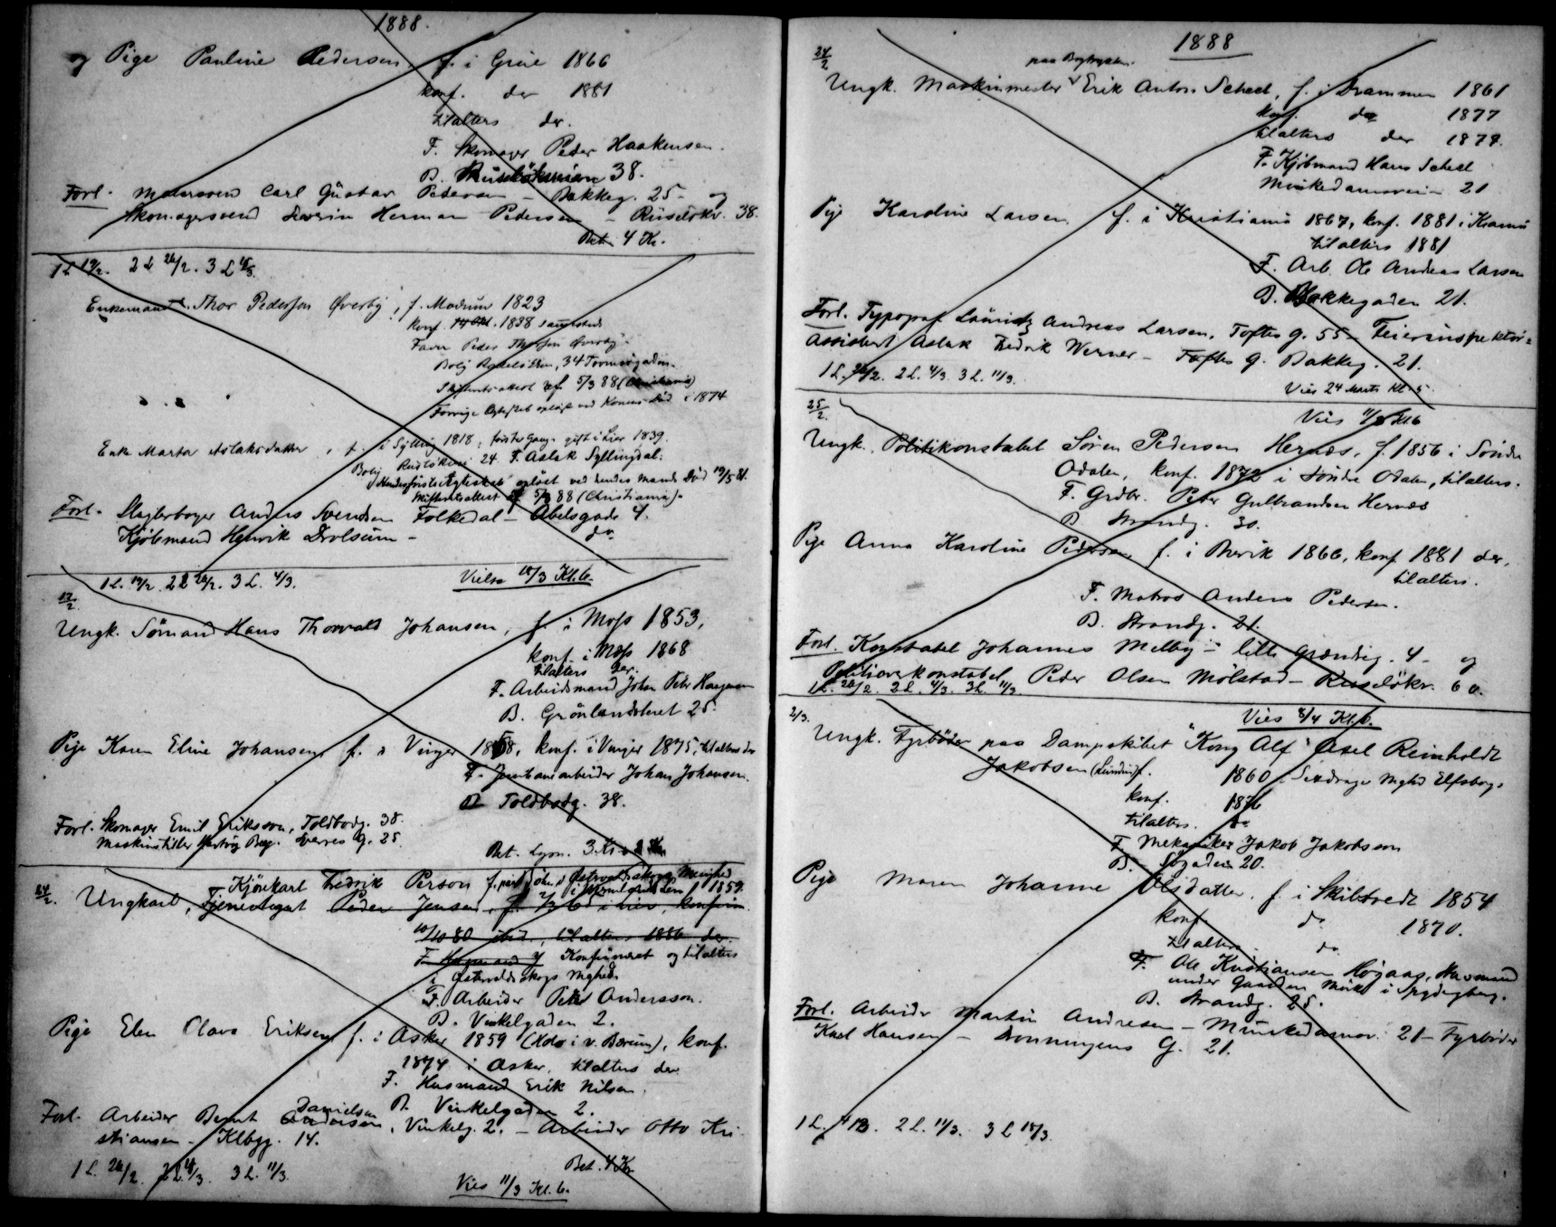 1888.
og Pige Pauline Pedersen f. i Grue 1866
konf. der 1881
tilalters der.
F. Skomager Peder Haakensen.
B. Ruseløkveien 38.
Forl. Malersvend Carl Gustav Pedersen – Bakkeg. 25 – og
Skomagersvend Severin Herman Pedersen – Ruseløkv. 38.
Bet. 4 Kr.
1 L 19/2. 2 L 26/2. 3 L 4/3.
Enkemand Thor Pedersen Øverby, f. Modum 1823
konf. 1838 sammesteds
Fader Peder Thorsen Øverby.
Bolig Ruseløkken, 34
Skifteattest af 5/3 88 (Christiania)
Forrige Egteskab opløst ved Konens Død i 1874
Enke Marta Aslaksdatter, f. i Sylling 1818, første Gang gift i Lier 1839.
Bolig Ruseløkvei 24. F. Aslak Syllingdal.
Hendes første Egteskab opløst ved hendes Mands Død
Skifteattest af 5/3 88 (Christiania).
Forl. Slagterborger Anders Svendsen Folkedal – Abelsgade 4.
Kjøbmand Henrik Drolsum – do
1 L. 19/2. 2 L 26/2. 3 L. 4/3. Vielse 18/3 Kl. 6.
13/2
Ungk. Sømand Hans Thorvald Johansen, f. i Moss 1853,
konf. i Moss 1868
tilalters der.
F. Arbeidsmand Johan Peter
B. Grønlandsleret 25.
Pige Karen Eline Johansen, f. i Vinger 1858, konf. i Vinger 1875, tilalters der
F. Jernbanearbeider Johan Johansen.
B. Toldbodg. 38.
Forl. Skomager Emil Eriksson, Toldbodg. 38.
Maskinstiller Berg. Sverres g. 25.
Bet. Lysn. 3 Kr.
24/2. Ungkarl, Kjørekarl Fredrik Person f.
Tjenestegut Peder Jensen, f. i Lier, konfirm.
10/10 80 ibid, tilalters 1886 der.
F. Konfirmeret og tilalters
i Østervalskogs Meghed.
F. Arbeider Peter Andersson.
B. Vinkelgaden 2.
Pige Elen Olava Eriksen f. i Asker 1859 (Kolo i v. Bærum), konf.
1874 i Asker, tilalters der
F. Husmand Erik Nilsen.
B. Vinkelgaden 2.
Forl. Arbeider Bernt Danielsen Andersen, Vinkelg. 2. – Arbeider Otto Kri-
stiansen – Klbgg. 14.
Bet. 4 Kr.
1 L. 26/2. 2 L. 4/3. 3 L. 11/3. Vies 11/3 Kl. 6.
1888
24/2
Ungk. Maskinmester paa Bogtrykkeri Erik Anton Scheel, f. i Drammen 1861
konf. der 1877
tilalters der 1879.
F. Kjøbmand Hans Scheel
Munkedamsveien 21
Pige Karoline Larsen f. i Kristiania 1867, konf. 1881 i Kra­nia
tilalters 1881
F. Arb. Ole Andreas Larsen
B. Bakkegaden 21.
Forl. Typograf Andreas Larsen, Toftes g. 55 – Feierinspektør-
Assistent Aslak Fredrik Werner – Toftes g. Bakkeg. 21.
1 L. 26/2. 2 L. 4/3. 3 L. 11/3. Vies 24 Marts Kl. 5.
25/2. Vies Kl 6
Ungk. Politikonstabel Søren Pedersen Hernæs, f. 1856 i Søndre
Odalen, konf. 1872 i Søndre Odalen, tilalters.
F. Grdbr. Peder Gulbrandsen Hernæs
B. Strandg. 30.
Pige Anna Karoline Pedersen f. i Brevik 1866, konf. 1881 der,
tilalters.
F. Matros Anders Pedersen.
B. Strandg. 21.
Forl. Konstabel Johannes Melby – lille Grændseg. 4 – og
Politioverkonstabel Peder Olsen Mølstad – Ruseløkv. 60.
1 L. 26/2. 2 L. 4/3. 3 L 11/3
2/3. Vies 2/4 Kl. 6.
Ungk. Fyrbøder paa Dampskibet "Kong Alf" Axel Reinholdt
Jakobsen (Lundin) f. 1860 i Elfsborgs
konf. 1876
tilalters. do
F. Mekaniker Jakob Jakobsson
B. Søgaden 20.
Pige Maren Johanne Olsdatter f. i Skibtvedt 1854
konf. do 1870.
tilalters do
F. Ole Kristiansen Høgaas, Husmand
under Gaarden Mørk i Spydeberg.
B. Strandg. 25.
Forl. Arbeider Martin Andresen – Munkedamsv. 21 – Fyrbøder
Karl Hansen – Dronningens G. 21.
1 L. 4/3. 2 L. 11/3. 3 L 18/3.